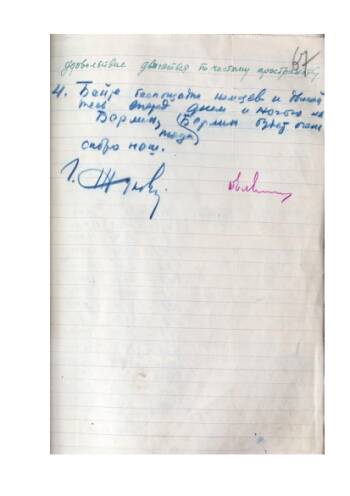 67
удовольствие двигаться по чистому пространству
4. Бейте беспощадно немцев и двигай
тесь вперед днем и ночью на
Берлин, Берлин будет очень
тогда
скоро наш.
Г. Жуков